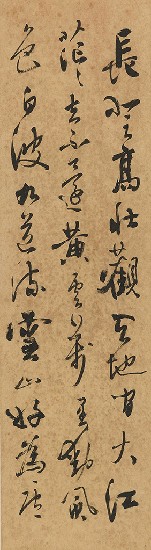 高壯觀天地間大江
茫茫去不還黃雲萬里動風
色白波九道流雪山好為廬